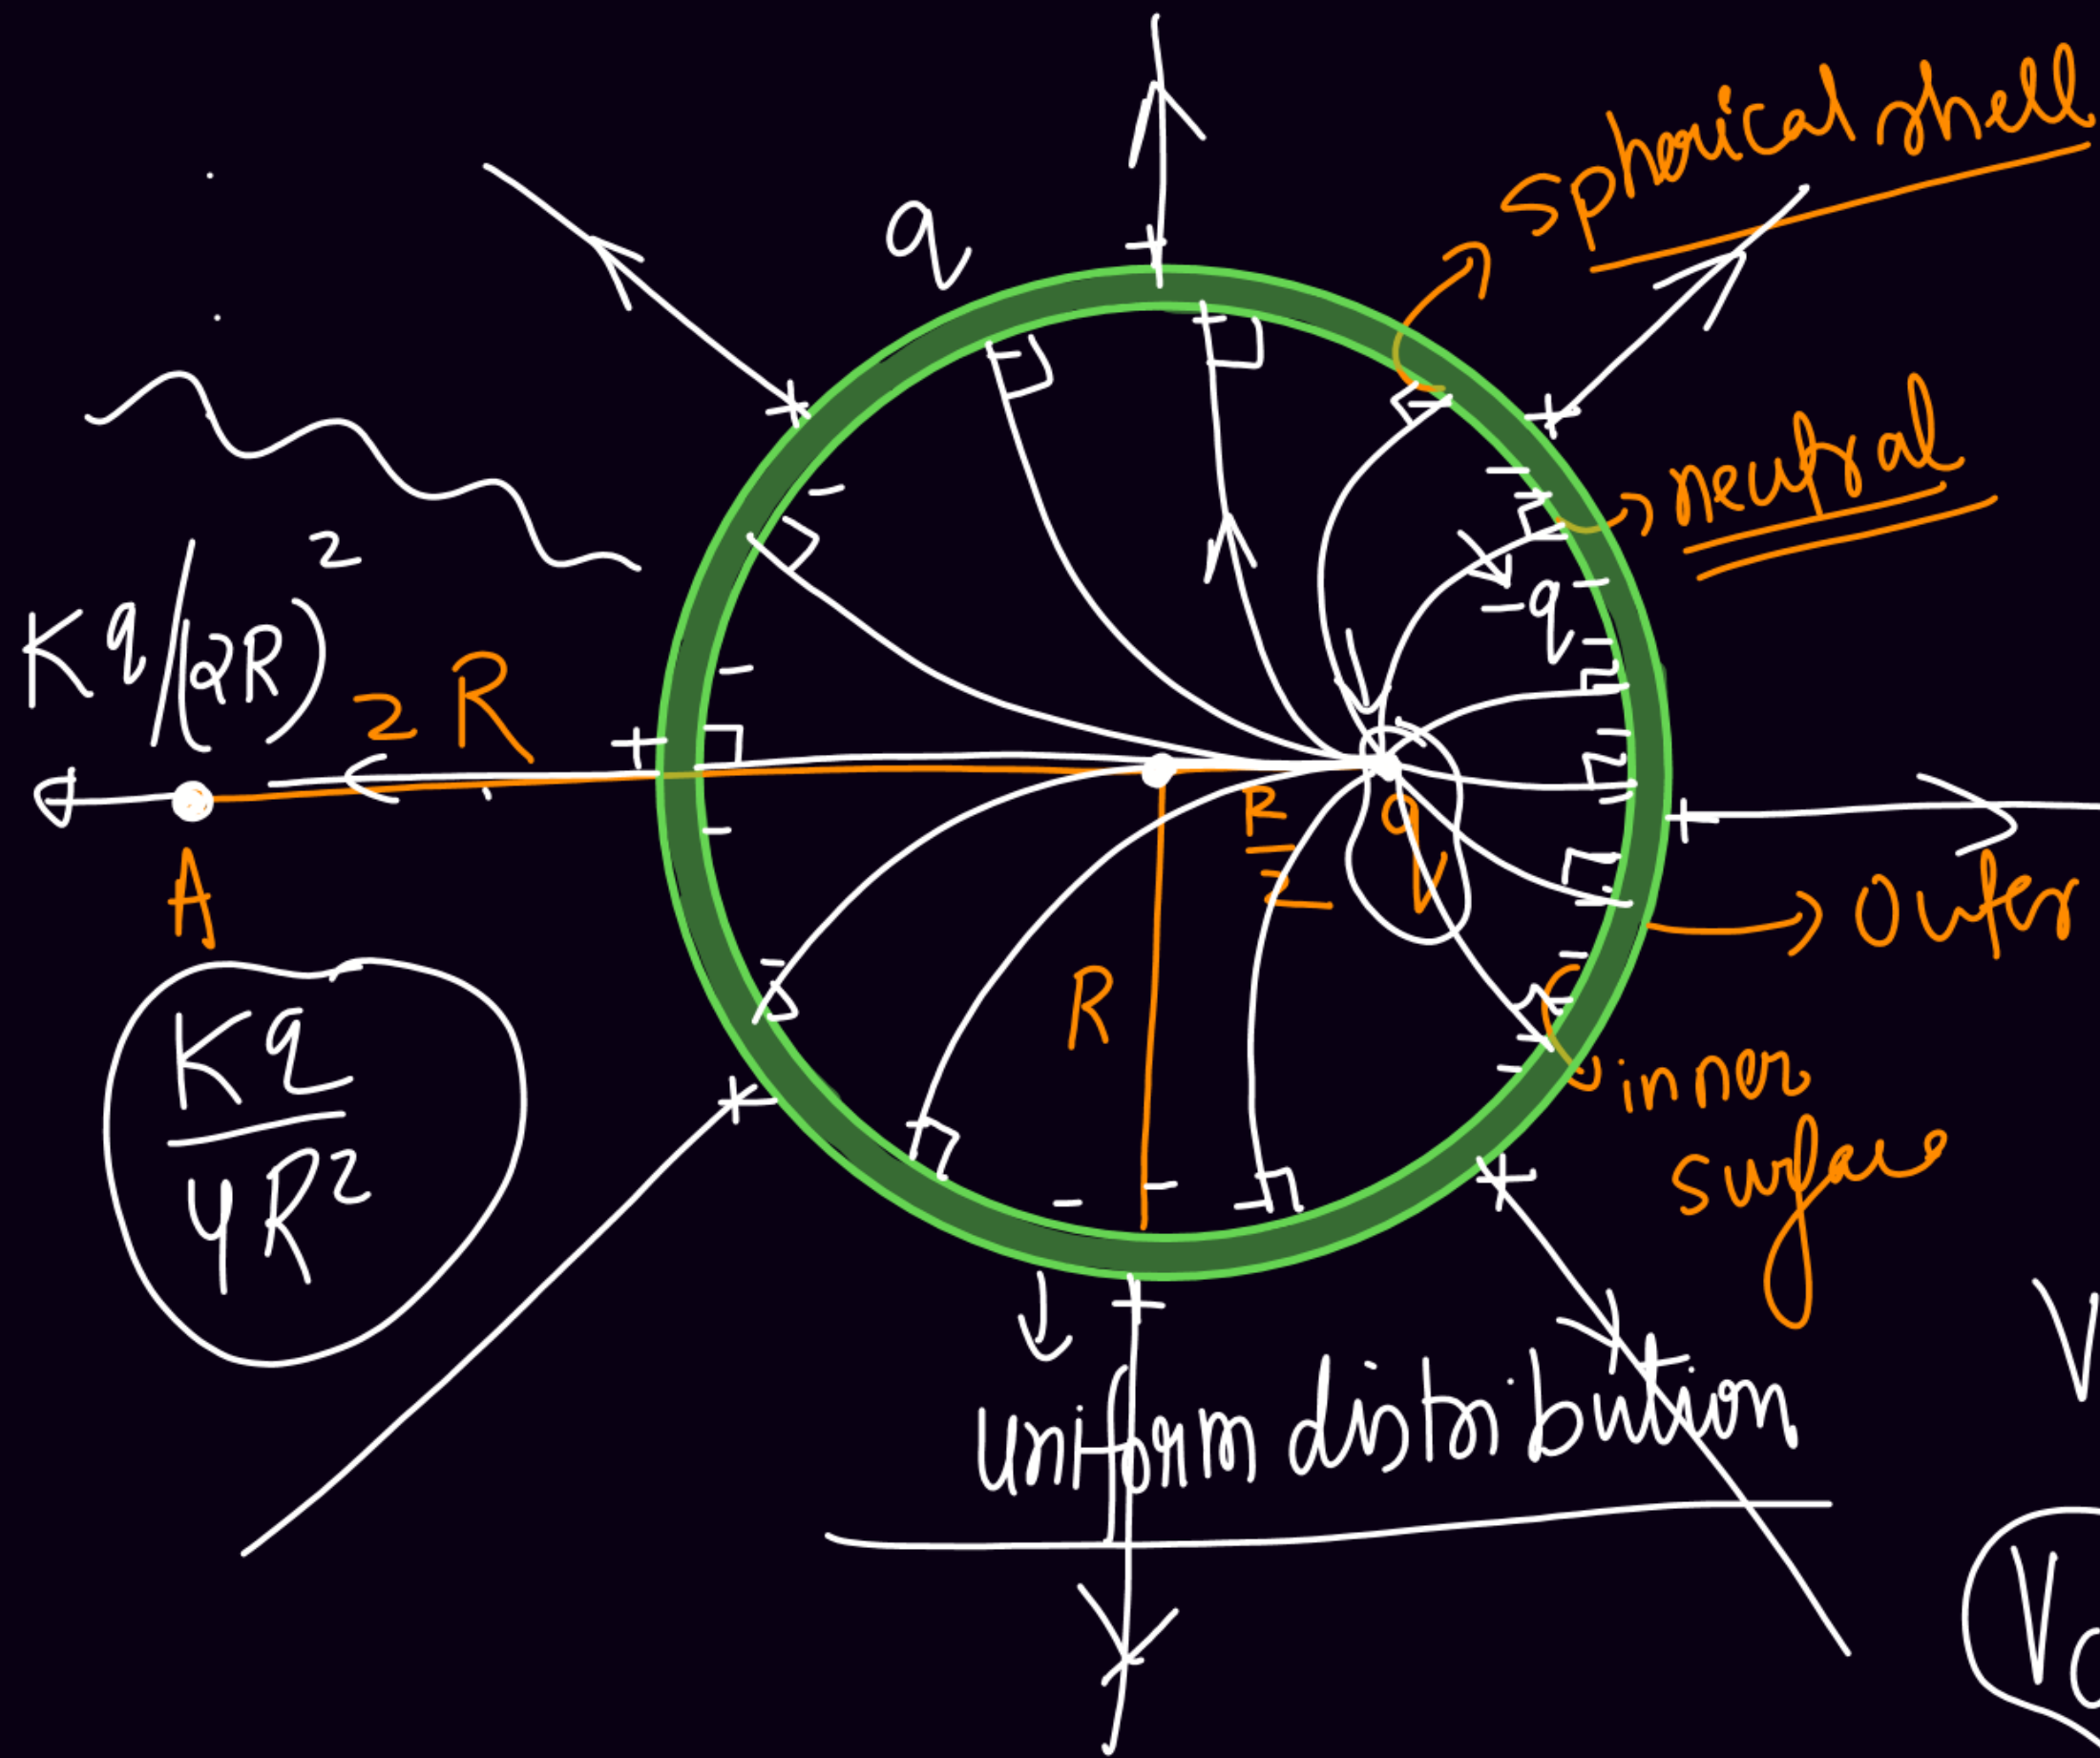 spherical shell
q
neutral
-q
Kq/(2R)²
2R
A
R/2
q
R
Outer
inner
surface
Kq/4R²
uniform distribution
V